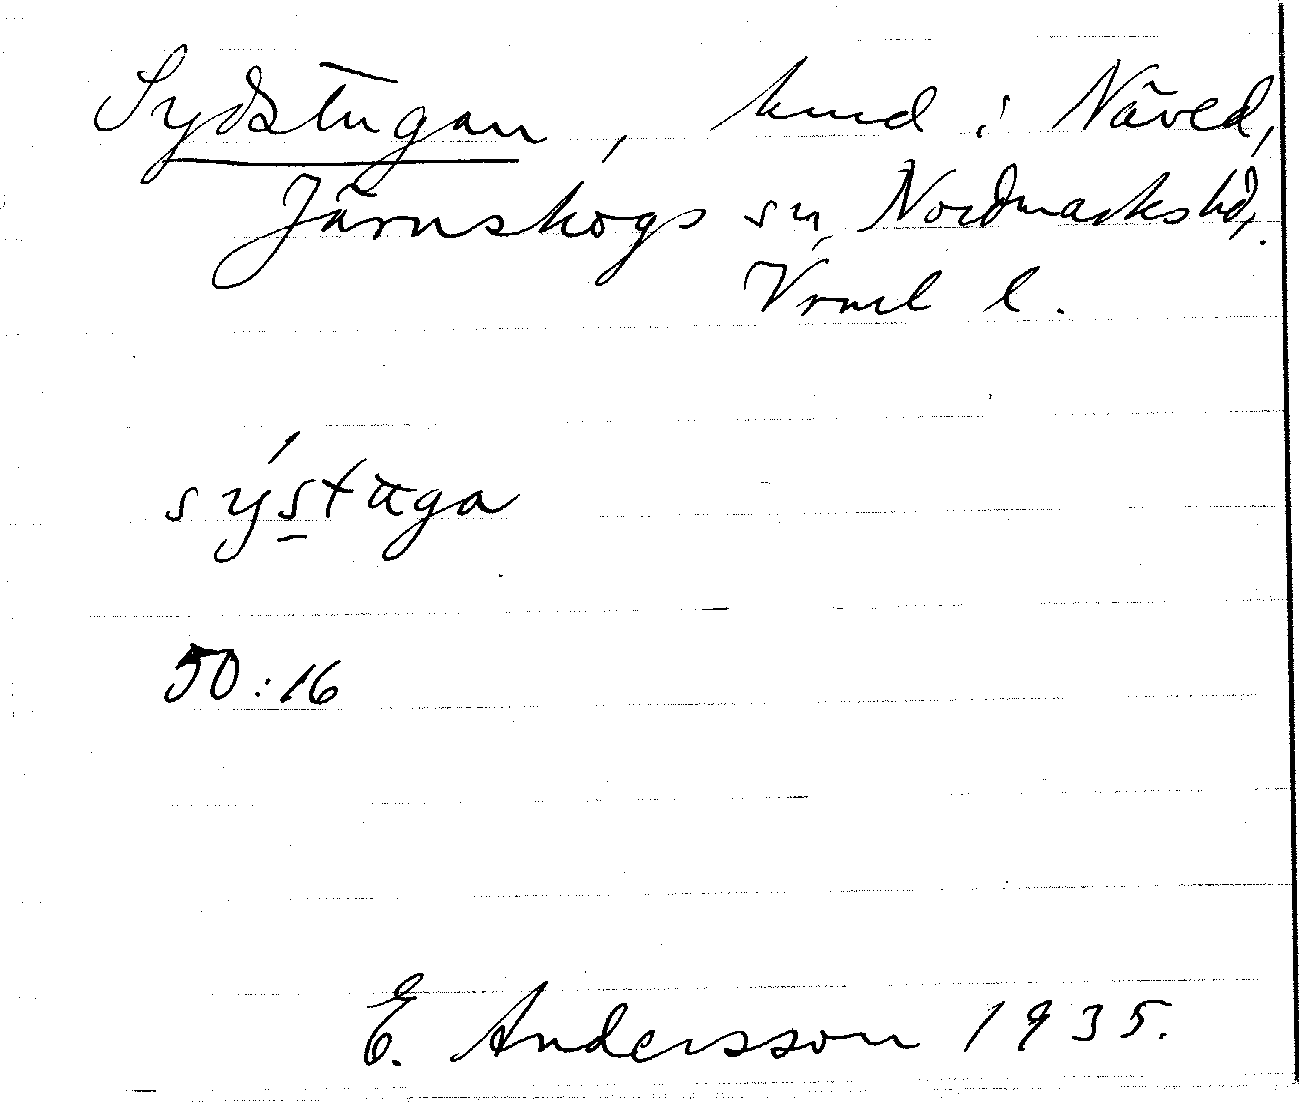 Sydstugan, hmd i Näved,
Järnskogs sn, Nordmarks hd,
Vrml l.
sýstuga
50:16
E. Andersson 1935.